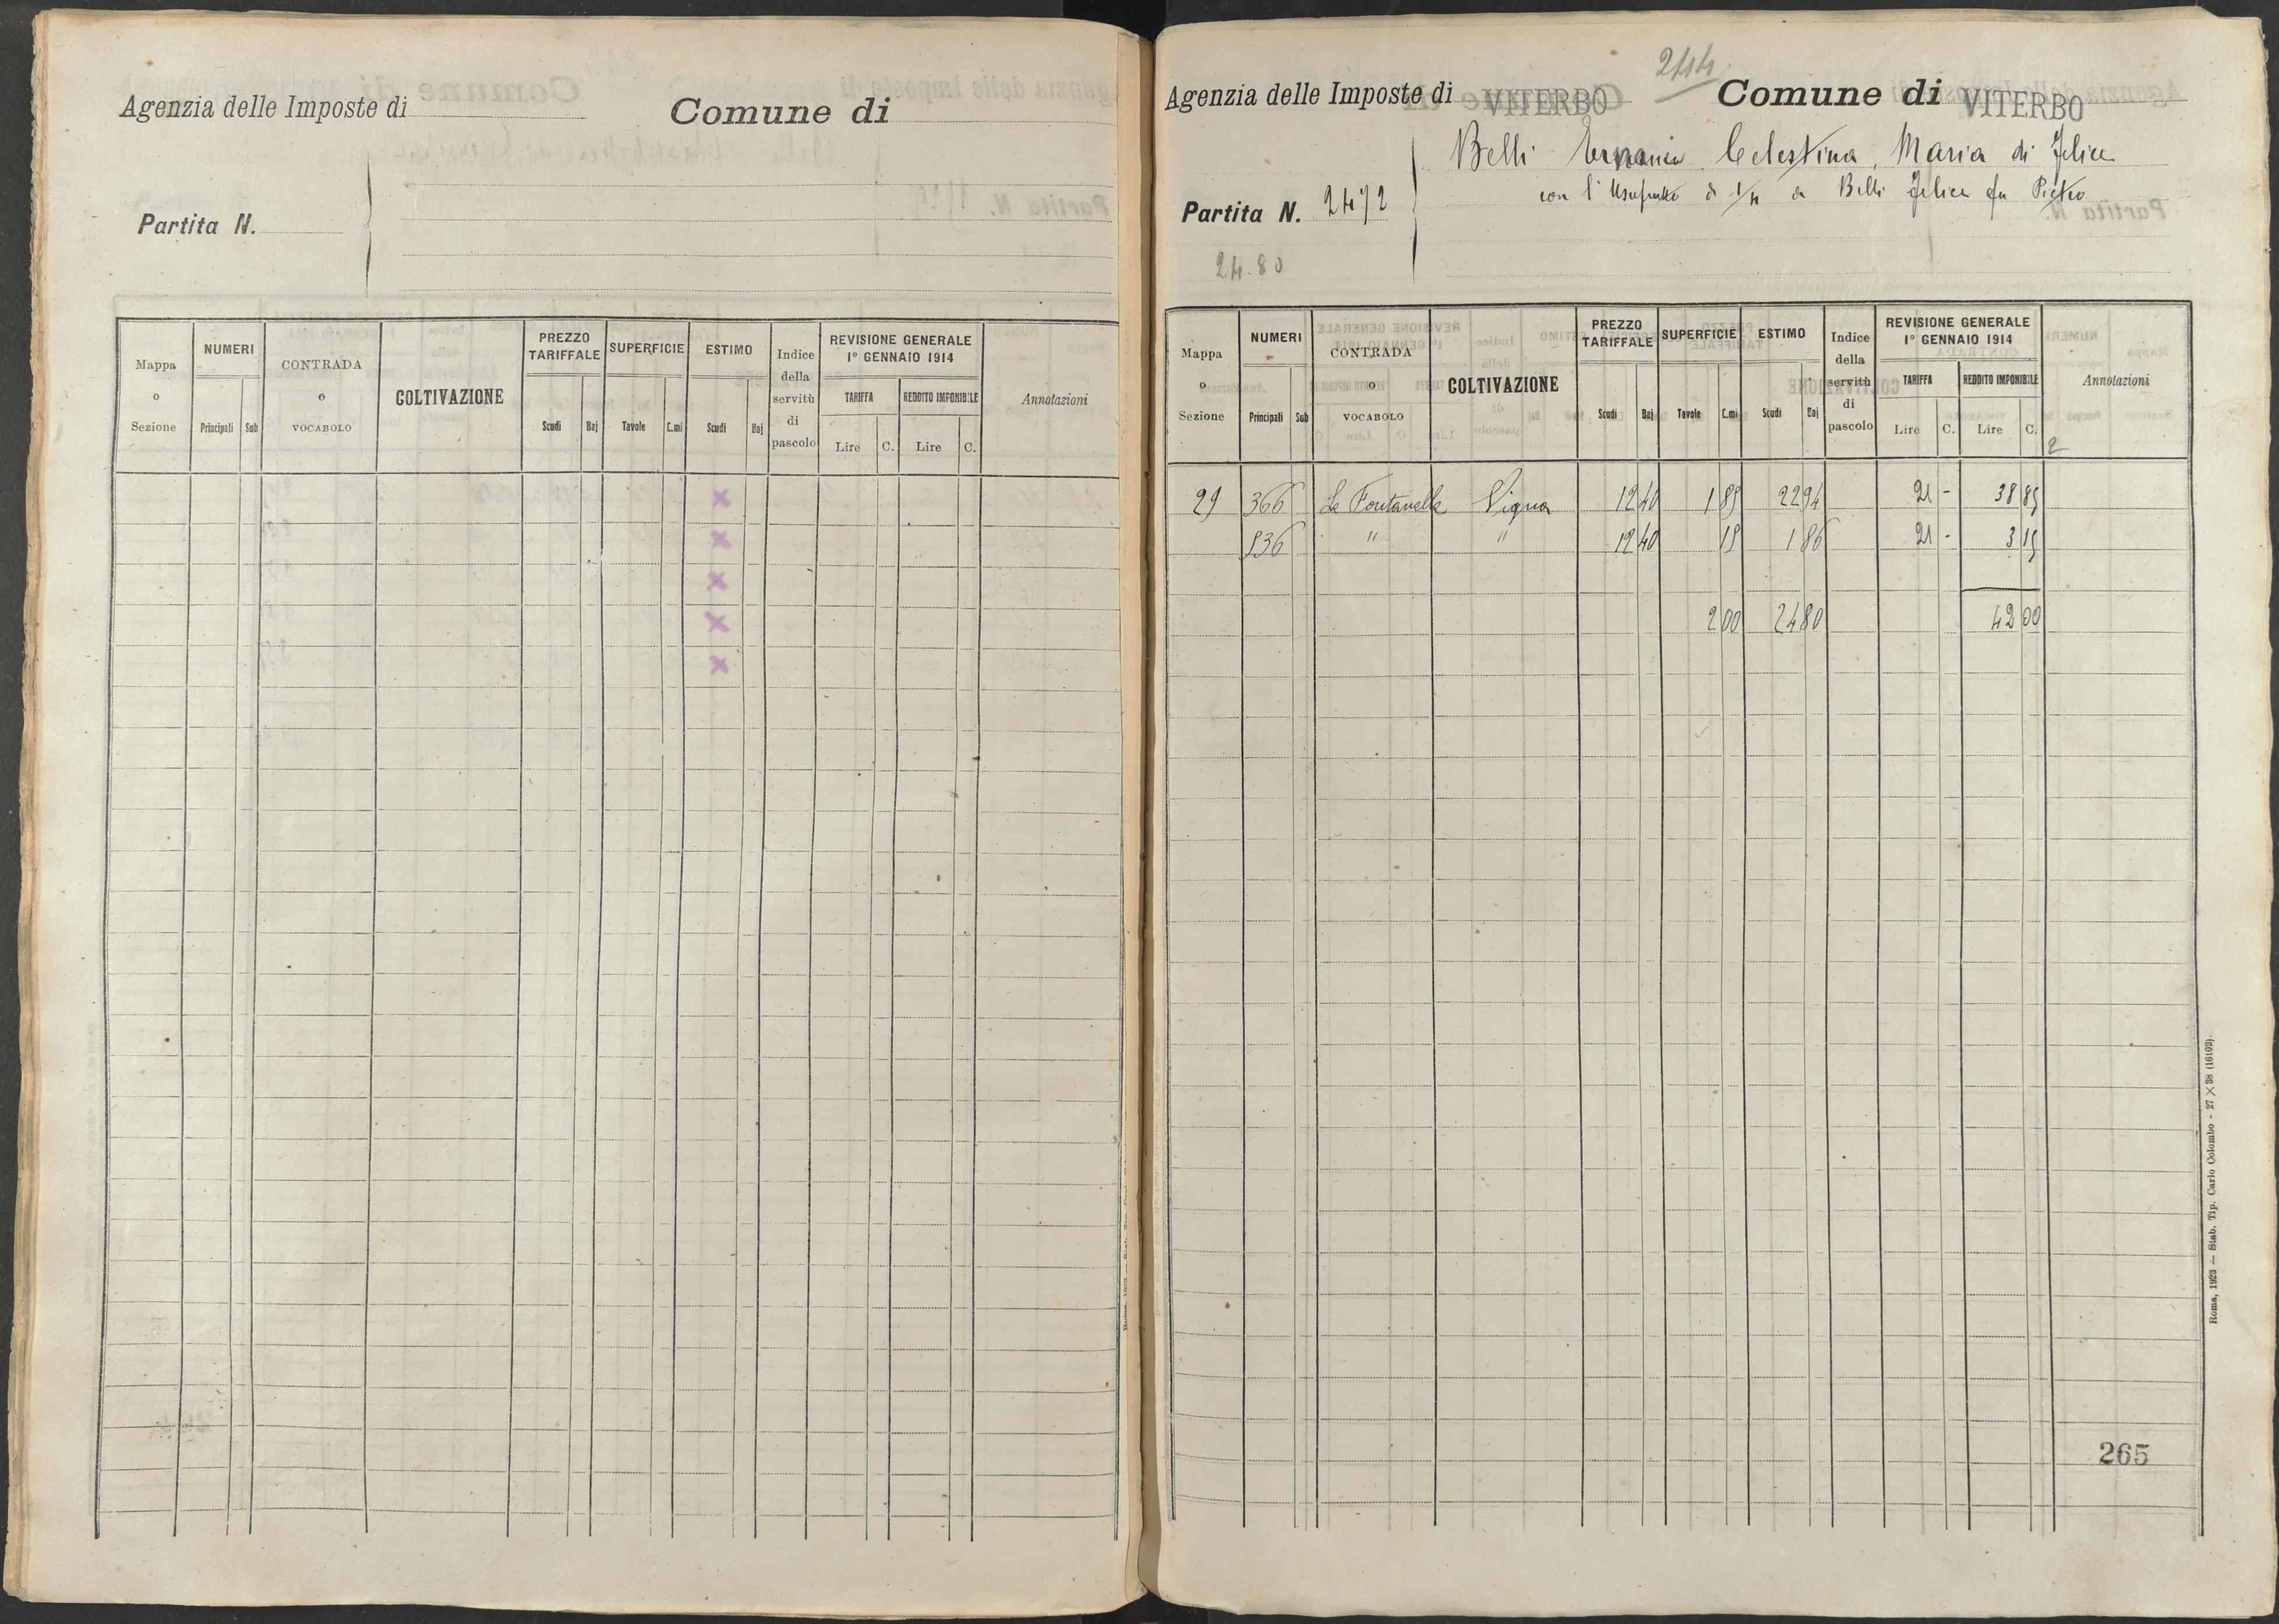 Agenzia delle Imposte di
Comune di
Partita N.
Mappa o Sezione
NUMERI
Principali Sub
CONTRADA o VOCABOLO
COLTIVAZIONE
PREZZO TARIFFALE
Scudi Baj
SUPERFICIE
Tavole C.mi
ESTIMO
Scudi Baj
Indice della servitù di pascolo
REVISIONE GENERALE
1° GENNAIO 1914
TARIFFA
Lire C.
REDDITO IMPONIBILE
Lire C.
Annotazioni
244
Agenzia delle Imposte di VITERBO Comune di VITERBO
Belli Ernania Celestina, Maria di Felice
con l'Usufrutto di 1/4 a Belli Felice fu Pietro
Partita N. 2472
24.80
Mappa o Sezione
NUMERI
Principali Sub
CONTRADA o VOCABOLO
COLTIVAZIONE
PREZZO TARIFFALE
Scudi Baj
SUPERFICIE
Tavole C.mi
ESTIMO
Scudi Baj
Indice della servitù di pascolo
REVISIONE GENERALE
1° GENNAIO 1914
TARIFFA
Lire C.
REDDITO IMPONIBILE
Lire C.
Annotazioni
2
29 366 Le Fontanelle Vigna 12 40 1 85 22 94 21 - 38 85
536 " " 12 40 15 1 86 21 - 3 15
2 00 24 80 42 00
265
Roma, 1923 — Stab. Tip. Carlo Colombo - 27 × 38 (16103).